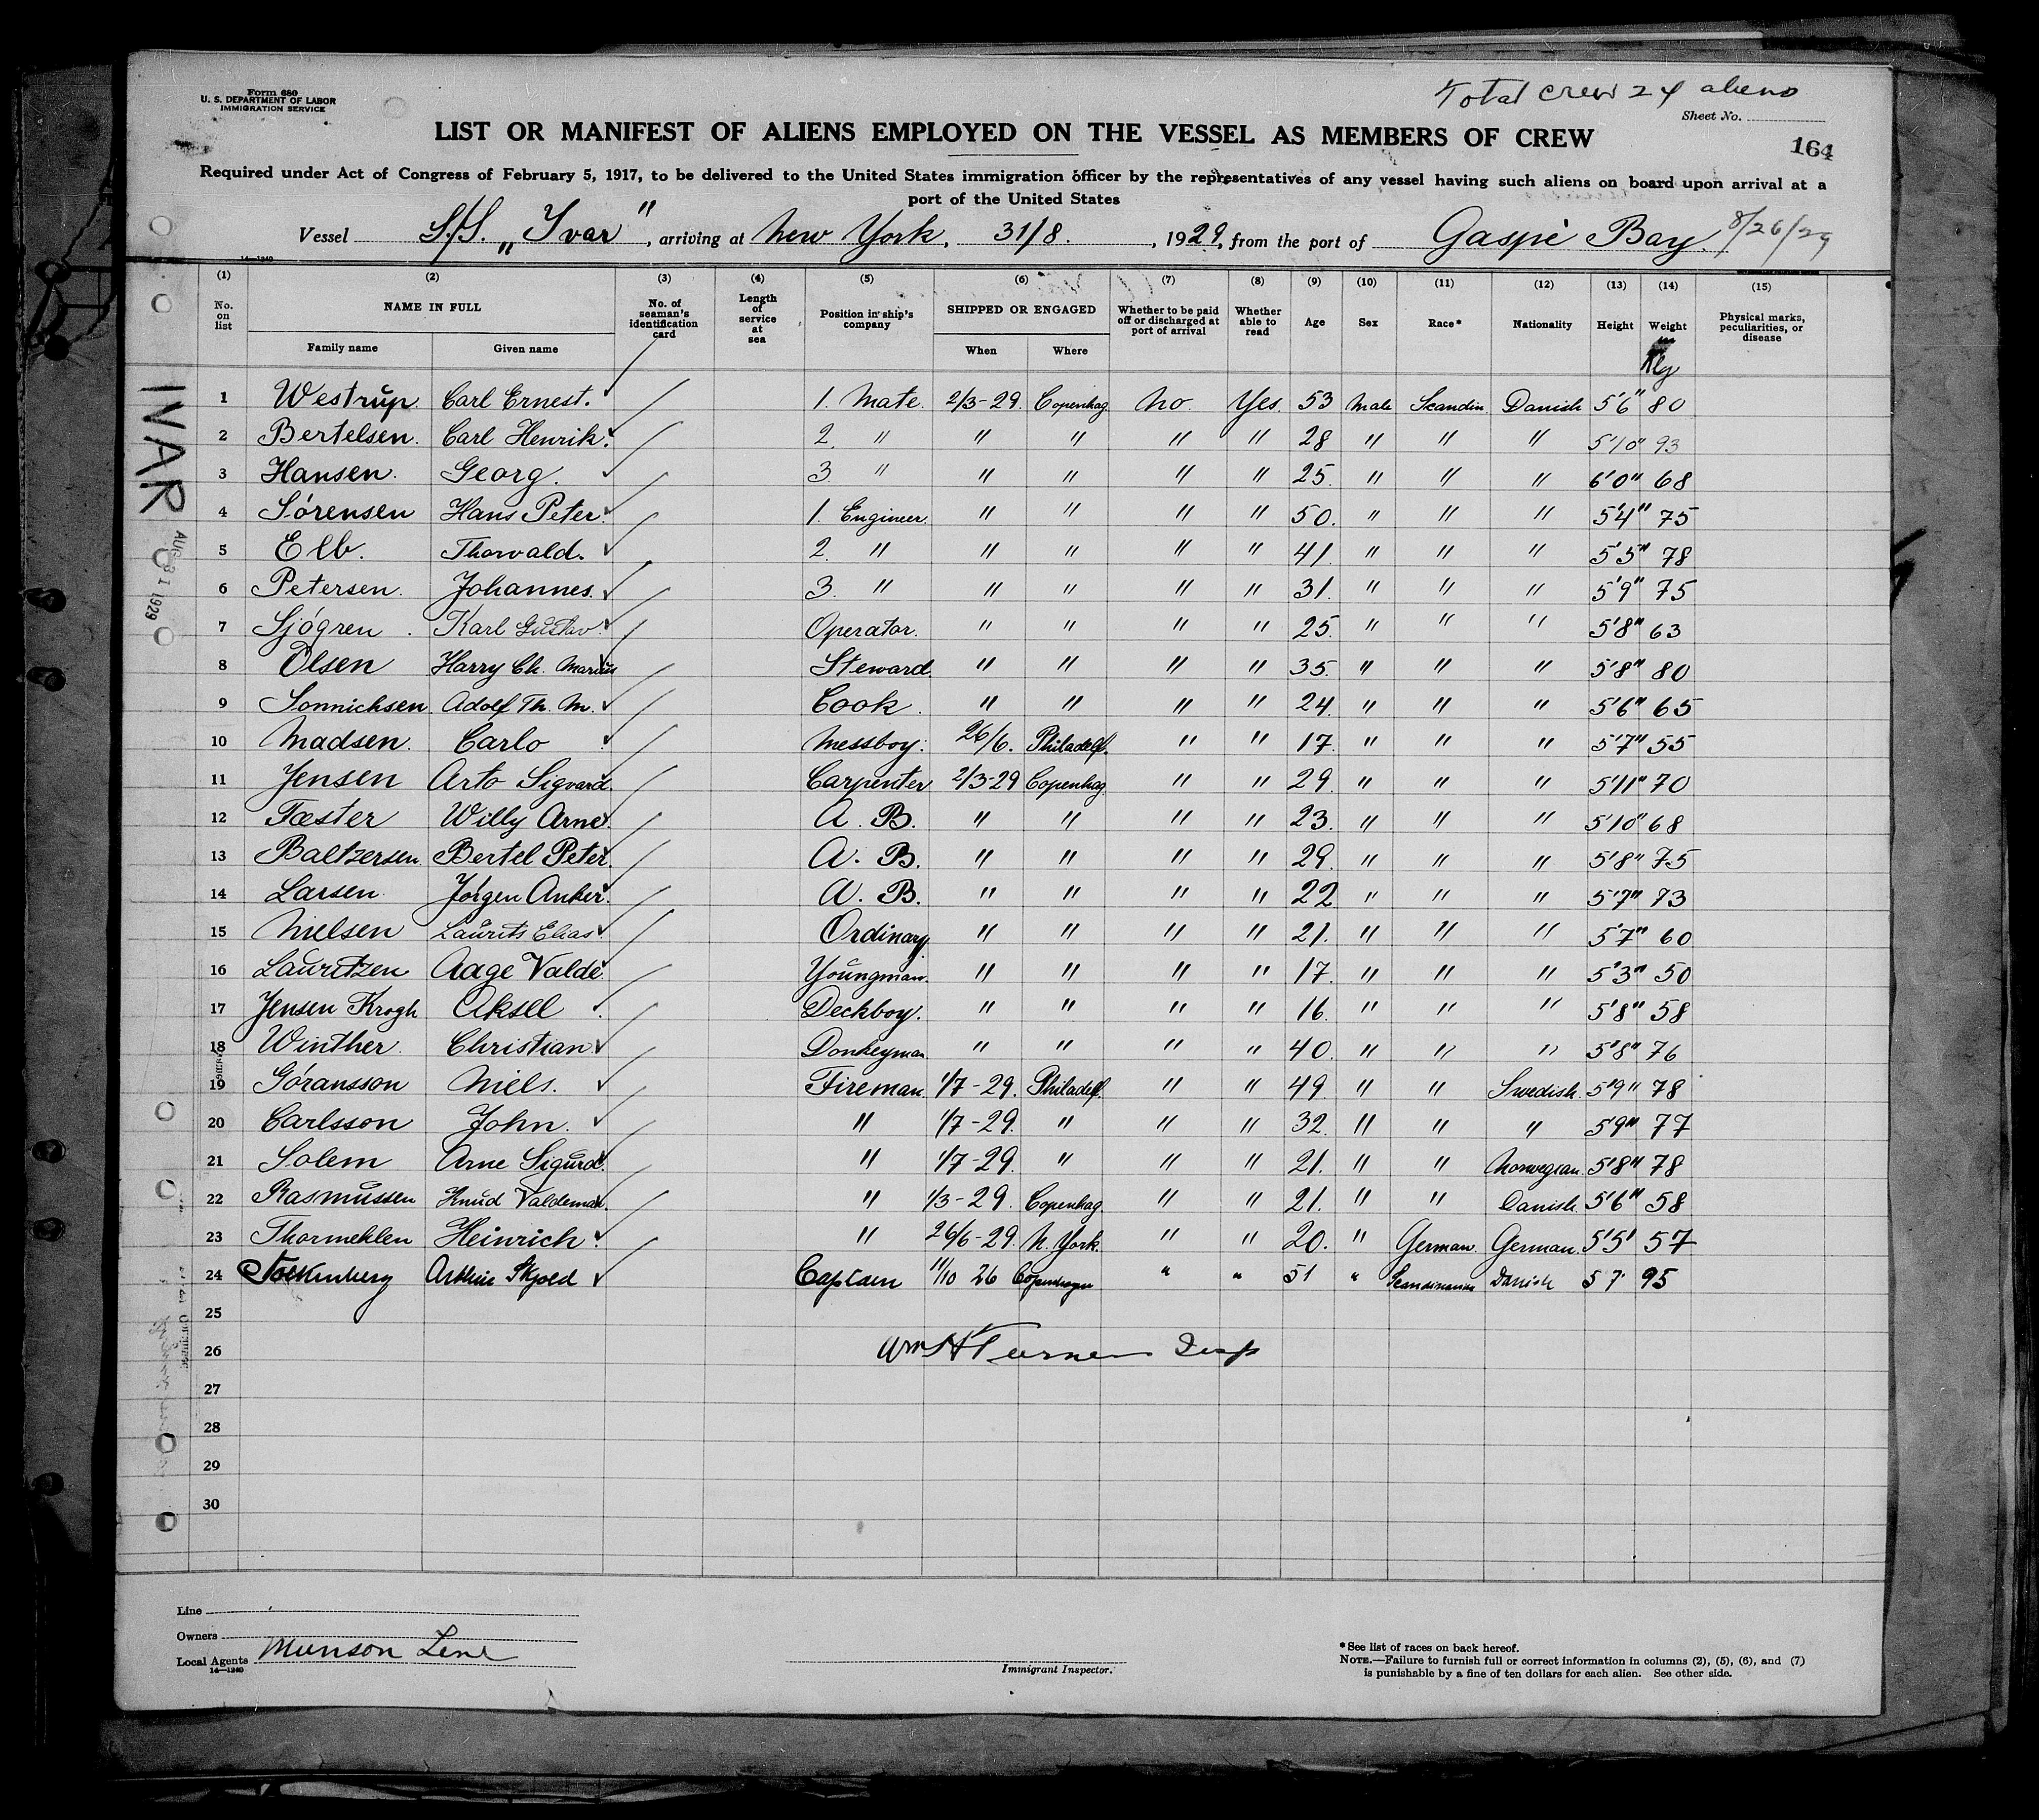 Form 680
U. S. DEPARTMENT OF LABOR
IMMIGRATION SERVICE
Total crew 24 aliens
Sheet No.
LIST OR MANIFEST OF ALIENS EMPLOYED ON THE VESSEL AS MEMBERS OF CREW
164
Required under Act of Congress of February 5, 1917, to be delivered to the United States immigration officer by the representatives of any vessel having such aliens on board upon arrival at a
port of the United States
Vessel S/S. „Ivar", arriving at New York, 31/8., 1929, from the port of Gaspé Bay. 8/26/29
14—1240
(1) (2) (3) (4) (5) (6) (7) (8) (9) (10) (11) (12) (13) (14) (15)
No. on list NAME IN FULL Family name Given name No. of seaman's identification card Length of service at sea Position in ship's company SHIPPED OR ENGAGED When Where Whether to be paid off or discharged at port of arrival Whether able to read Age Sex Race* Nationality Height Weight Physical marks, peculiarities, or disease
Kg
1 Westrup. Carl Ernest. 1. Mate. 2/3-29. Copenhag. No. Yes. 53 Male Scandin. Danish 5'6" 80
2 Bertelsen. Carl Henrik. 2. " " " " " 28 " " " 5'10" 93
3 Hansen. Georg. 3. " " " " " 25. " " " 6'0" 68
4 Sórensen Hans Peter. 1. Engineer. " " " " 50. " " " 5'4" 75
5 Elb. Thorvald. 2. " " " " " 41. " " " 5'5" 78
6 Petersen. Johannes. 3. " " " " " 31. " " " 5'9" 75
7 Sjógren. Karl Gustav. Operator. " " " " 25. " " " 5'8" 63
8 Olsen Harry Ch. Marius Steward. " " " " 35. " " " 5'8" 80
9 Sonnichsen. Adolf Th. M. Cook. " " " " 24. " " " 5'6" 65
10 Madsen. Carlo Messboy. 26/6. Philadelf. " " 17. " " " 5'7" 55
11 Jensen Arto Sigvard. Carpenter 2/3-29 Copenhag. " " 29. " " " 5'11" 70
12 Fæster Willy Arne. A. B. " " " " 23. " " " 5'10" 68
13 Baltzersen. Bertel Peter. A. B. " " " " 29. " " " 5'8" 75
14 Larsen. Jórgen Anker. A. B. " " " " 22 " " " 5'7" 73
15 Nielsen Laurits Elias. Ordinary. " " " " 21. " " " 5'7" 60
16 Lauritzen Aage Valde. Youngman. " " " " 17. " " " 5'3" 50
17 Jensen Krogh Aksel. Deckboy. " " " " 16. " " " 5'8" 58
18 Winther. Christian. Donkeyman. " " " " 40. " " " 5'8" 76
19 Góransson Niels. Fireman. 1/7-29. Philadelf. " " 49. " " Swedish. 5'9" 78
20 Carlsson John. " 1/7-29. " " " 32. " " " 5'9" 77
21 Solem Arne Sigurd. " 1/7-29. " " " 21. " " Norwegian. 5'8" 78
22 Rasmussen Knud Valdemar. " 1/3-29. Copenhag. " " 21. " " Danish. 5'6" 58
23 Thormehlen Heinrich. " 26/6-29. N. York. " " 20. " German. German. 5'5' 57
24 Arthur Skjold Captain 11/10 26 Copenhagen " " 51 " Scandinavian Danish 5 7 95
25
26 Wm H Turner Insp
27
28
29
30
IVAR
AUG 31 1929
Line
Owners
Local Agents Munson Line
14—1240
Immigrant Inspector.
*See list of races on back hereof.
NOTE.—Failure to furnish full or correct information in columns (2), (5), (6), and (7)
is punishable by a fine of ten dollars for each alien. See other side.